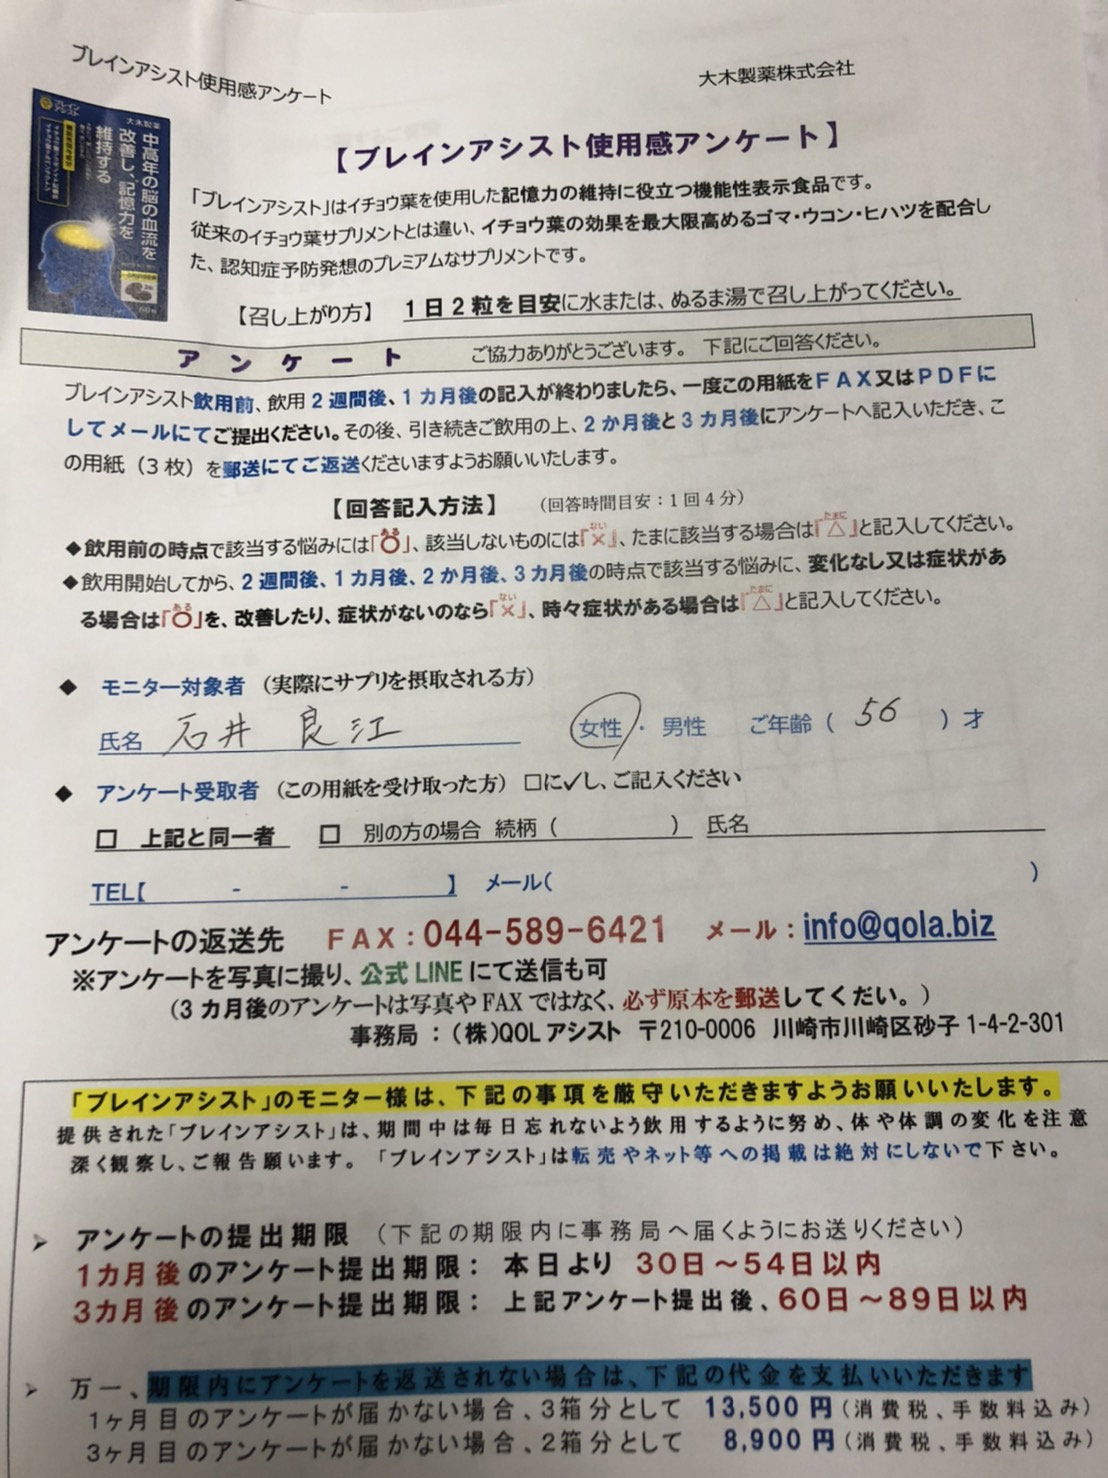 ブレインアシスト使用感アンケート
大木製薬株式会社
ブレインアシスト
大木製薬
中高年の脳の血流を
改善し、記憶力を
維持する
【ブレインアシスト使用感アンケート】
「ブレインアシスト」はイチョウ葉を使用した記憶力の維持に役立つ機能性表示食品です。
従来のイチョウ葉サプリメントとは違い、イチョウ葉の効果を最大限高めるゴマ・ウコン・ヒハツを配合し
た、認知症予防発想のプレミアムなサプリメントです。
【召し上がり方】 1日2粒を目安に水または、ぬるま湯で召し上がってください。
アンケート ご協力ありがとうございます。 下記にご回答ください。
ブレインアシスト飲用前、飲用2週間後、1カ月後の記入が終わりましたら、一度この用紙をFAX又はPDFに
してメールにてご提出ください。その後、引き続きご飲用の上、2か月後と3カ月後にアンケートへ記入いただき、こ
の用紙（3枚）を郵送にてご返送くださいますようお願いいたします。
【回答記入方法】 （回答時間目安：1回4分）
◆飲用前の時点で該当する悩みには「○ある」、該当しないものには「×ない」、たまに該当する場合は「△たまに」と記入してください。
◆飲用開始してから、2週間後、1カ月後、2か月後、3カ月後の時点で該当する悩みに、変化なし又は症状があ
る場合は「○ある」を、改善したり、症状がないのなら「×ない」、時々症状がある場合は「△たまに」と記入してください。
◆ モニター対象者 （実際にサプリを摂取される方）
氏名 石井 良江 女性・男性 ご年齢（ 56 ）才
◆ アンケート受取者（この用紙を受け取った方）□に✓し、ご記入ください
□ 上記と同一者 □ 別の方の場合 続柄（ ） 氏名
TEL【 - - 】 メール( )
アンケートの返送先 FAX：044-589-6421 メール：info@qola.biz
※アンケートを写真に撮り、公式LINEにて送信も可
（3カ月後のアンケートは写真やFAXではなく、必ず原本を郵送してくだい。）
事務局：（株）QOLアシスト 〒210-0006 川崎市川崎区砂子1-4-2-301
「ブレインアシスト」のモニター様は、下記の事項を厳守いただきますようお願いいたします。
提供された「ブレインアシスト」は、期間中は毎日忘れないよう飲用するように努め、体や体調の変化を注意
深く観察し、ご報告願います。 「ブレインアシスト」は転売やネット等への掲載は絶対にしないで下さい。
➢ アンケートの提出期限 （下記の期限内に事務局へ届くようにお送りください）
1カ月後のアンケート提出期限： 本日より 30日～54日以内
3カ月後のアンケート提出期限： 上記アンケート提出後、60日～89日以内
➢ 万一、期限内にアンケートを返送されない場合は、下記の代金を支払いいただきます
1ヶ月目のアンケートが届かない場合、3箱分として 13,500円（消費税、手数料込み）
3ヶ月目のアンケートが届かない場合、2箱分として 8,900円（消費税、手数料込み）